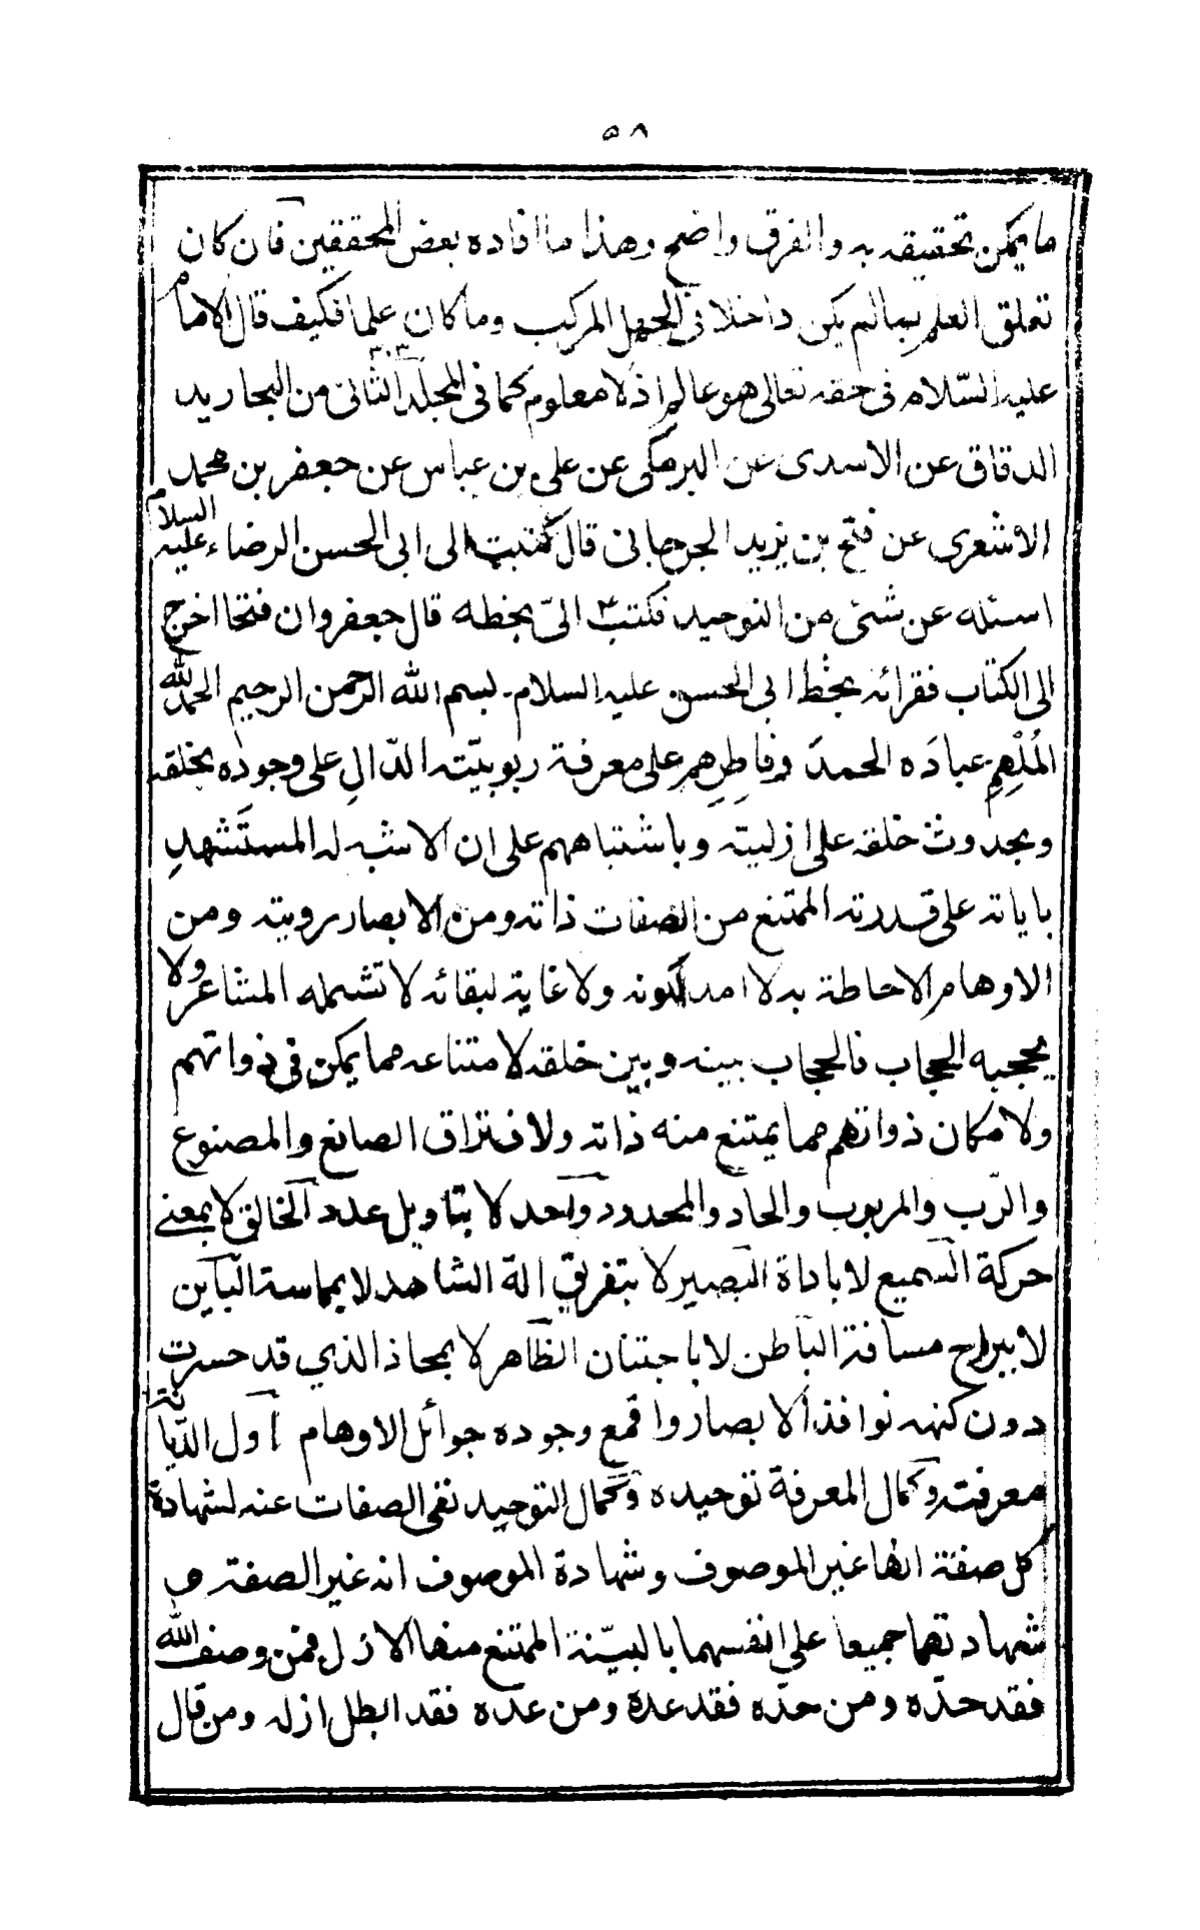 ٥٨
ما يمكن تحقيقه به والفرق واضح وهذا ما افاده بعض المحققين فان كان
تعلق العلم بما لم يكن داخلا فى الجهل المركب وما كان علما فكيف قال الامام
عليه السّلام فى حقه تعالى هو عالم اذ لا معلوم كما فى المجلد الثانى من البحار يد
الدقاق عن الاسدى عن البرمكى عن على بن عباس عن جعفر بن محمد
الاشعرى عن فتح بن يزيد الجرجانى قال كتبت الى ابى الحسن الرضاء عليه السلام
اسئله عن شئ من التوحيد فكتب الىّ بخطه قال جعفر وان فتحا اخرج
الى الكتاب فقرائه بخط ابى الحسن عليه السلام بسم الله الرحمن الرحيم الحمد لله
المُلْهِمِ عبادَه الحمدَ وفاطِرِهم على معرفة ربوبيّته الدّالِ على وجوده بخلقه
وبحدوث خلقه على ازليته وباشتباههم على ان لا شبه له المستَشهدِ
باياته على قدرته الممتنع من الصفات ذاته ومن الابصار رويته ومن
الاوهام الاحاطة به لا امد لكونه ولا غاية لبقائه لا تشمله المشاعر ولا
يحجبه الحجاب فالحجاب بينه وبين خلقه لامتناعه مما يمكن فى ذواتهم
ولا مكان ذواتهم مما يمتنع منه ذاته ولافتراق الصانع والمصنوع
والرّب والمربوب والحاد والمحدود واحد لا بتاويل عدد الخالق لا بمعنى
حركة السميع لا باداة البصير لا بتفريق الة الشاهد لا بمماسة البآين
لا ببراح مسافة الباطن لا باجتنان الظاهر لا بمحاذ الذي قد حسرت
دون كنهه نوافذ الابصار واقمع وجوده جوائل الاوهام اول الدّيانة
معرفته وكمال المعرفة توحيده وكمال التوحيد نفى الصفات عنه لشهادة
كل صفة انها غير الموصوف وشهادة الموصوف انه غير الصفة و
شهادتهما جميعا على انفسهما بالبيّنة الممتنع منها الازل فمن وصف الله
فقد حدّه ومن حدّه فقد عدّه ومن عدّه فقد ابطل ازله ومن قال